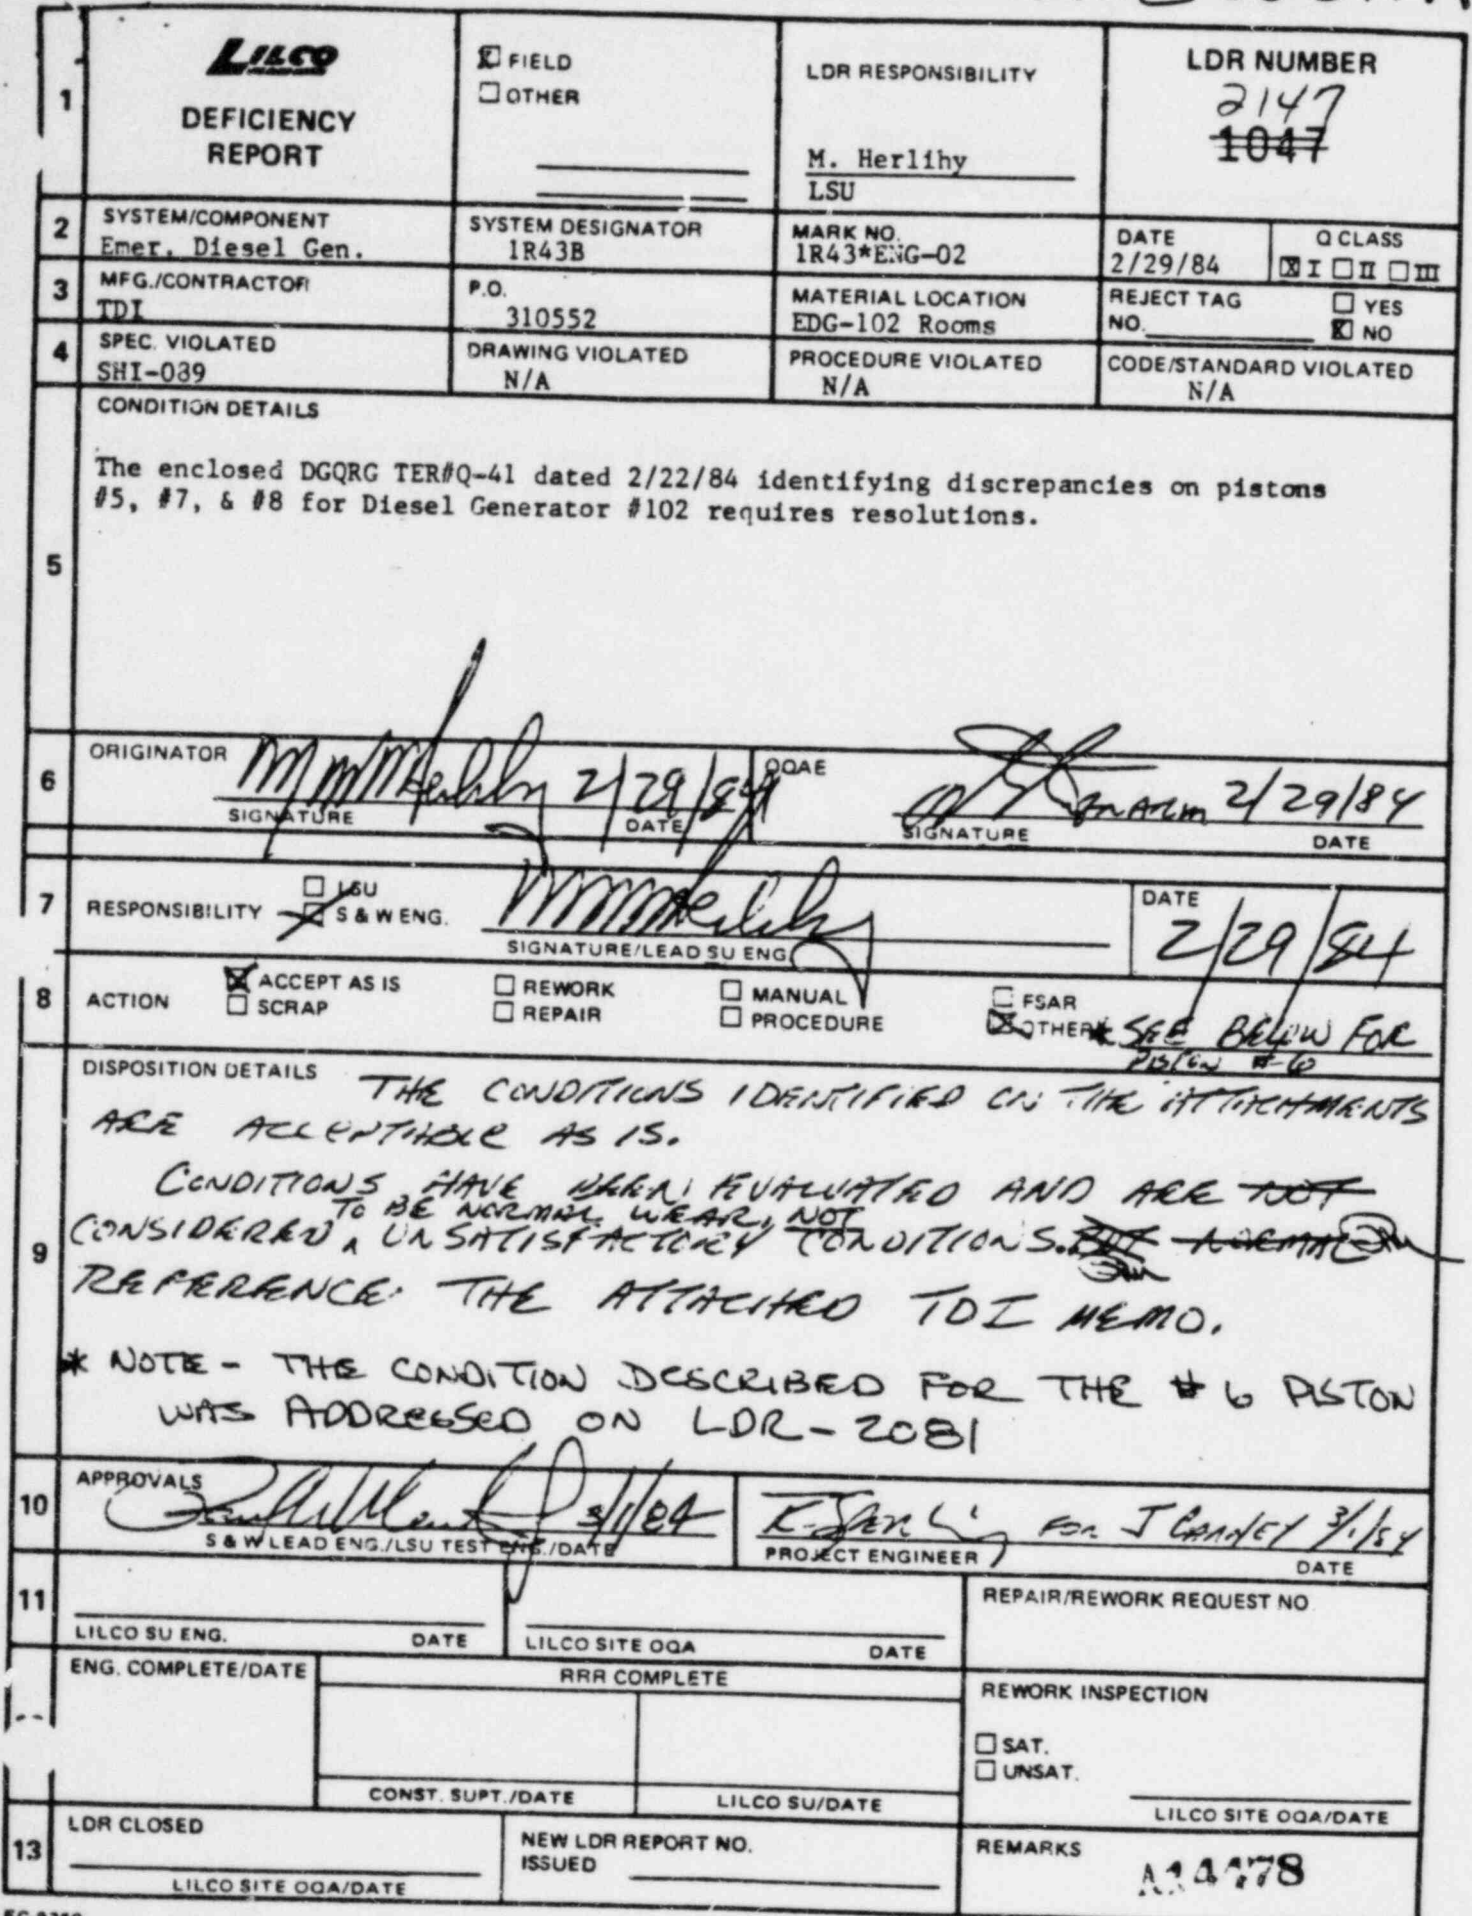 LILCO
DEFICIENCY
REPORT
FIELD
OTHER
LDR RESPONSIBILITY
M. Herlihy
LSU
LDR NUMBER
2147
1047
1
2
SYSTEM/COMPONENT
Emer. Diesel Gen.
SYSTEM DESIGNATOR
1R43B
MARK NO.
1R43*ENG-02
DATE
2/29/84
Q CLASS
I II III
3
MFG./CONTRACTOR
TDI
P.O.
310552
MATERIAL LOCATION
EDG-102 Rooms
REJECT TAG
NO.
YES
NO
4
SPEC. VIOLATED
SHI-089
DRAWING VIOLATED
N/A
PROCEDURE VIOLATED
N/A
CODE/STANDARD VIOLATED
N/A
5
CONDITION DETAILS
The enclosed DGQRG TER#Q-41 dated 2/22/84 identifying discrepancies on pistons
#5, #7, & #8 for Diesel Generator #102 requires resolutions.
6
ORIGINATOR
2/29/84
SIGNATURE DATE
OQAE
2/29/84
SIGNATURE DATE
7
RESPONSIBILITY
LSU
S & W ENG.
SIGNATURE/LEAD SU ENG
DATE
2/29/84
8
ACTION
ACCEPT AS IS
SCRAP
REWORK
REPAIR
MANUAL
PROCEDURE
FSAR
OTHER * SEE BELOW FOR
PISTON #6
9
DISPOSITION DETAILS
THE CONDITIONS IDENTIFIED ON THE ATTACHMENTS
ARE ACCEPTABLE AS IS.
CONDITIONS HAVE BEEN EVALUATED AND ARE NOT
TO BE NORMAL WEAR, NOT
CONSIDERED UNSATISFACTORY CONDITIONS. BUT NORMAL
REFERENCE THE ATTACHED TDI MEMO.
* NOTE - THE CONDITION DESCRIBED FOR THE #6 PISTON
WAS ADDRESSED ON LDR-2081
10
APPROVALS
3/1/84
S & W LEAD ENG./LSU TEST ENG./DATE
FOR J CARNEY 3/1/84
PROJECT ENGINEER
DATE
11
LILCO SU ENG. DATE
LILCO SITE OQA DATE
REPAIR/REWORK REQUEST NO.
ENG. COMPLETE/DATE
RRR COMPLETE
CONST. SUPT./DATE
LILCO SU/DATE
REWORK INSPECTION
SAT.
UNSAT.
LILCO SITE OQA/DATE
13
LDR CLOSED
LILCO SITE OQA/DATE
NEW LDR REPORT NO.
ISSUED
REMARKS